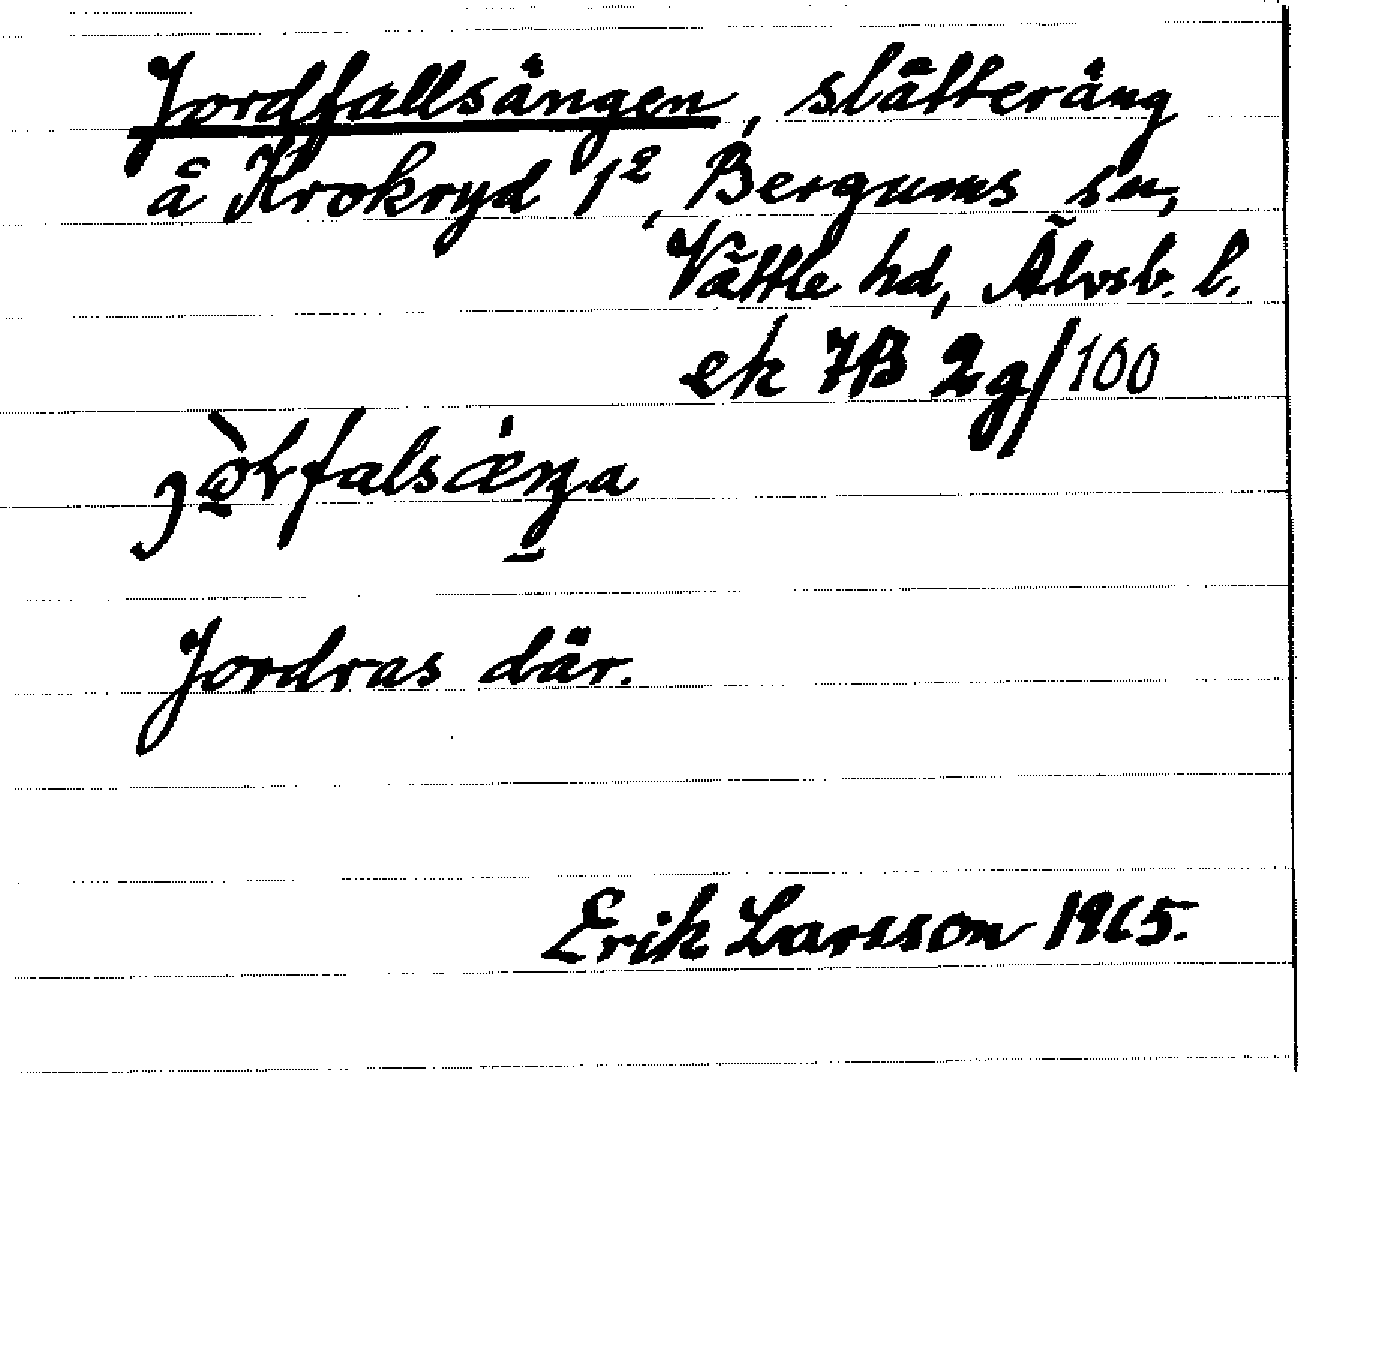 Jordfallsängen, slätteräng
å Krokryd 1², Bergums sn,
Vättle hd, Älvsb. l.
ek 7B 2g/100
Jordras där.
Erik Larsson 1965.